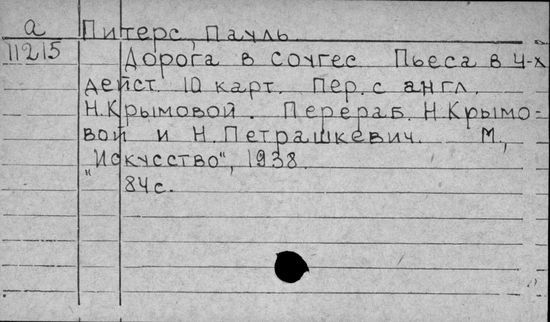 а Питерс, Пауль.
11215 Дорога в Сочгес. Пьеса в 4-х
дейст. 10 карт. Пер. с англ.
Н.Крымовой. Перераб. Н.Крымо-
вой и Н.Петрашкевич. М.,
"Искусство", 1938.
84 с.